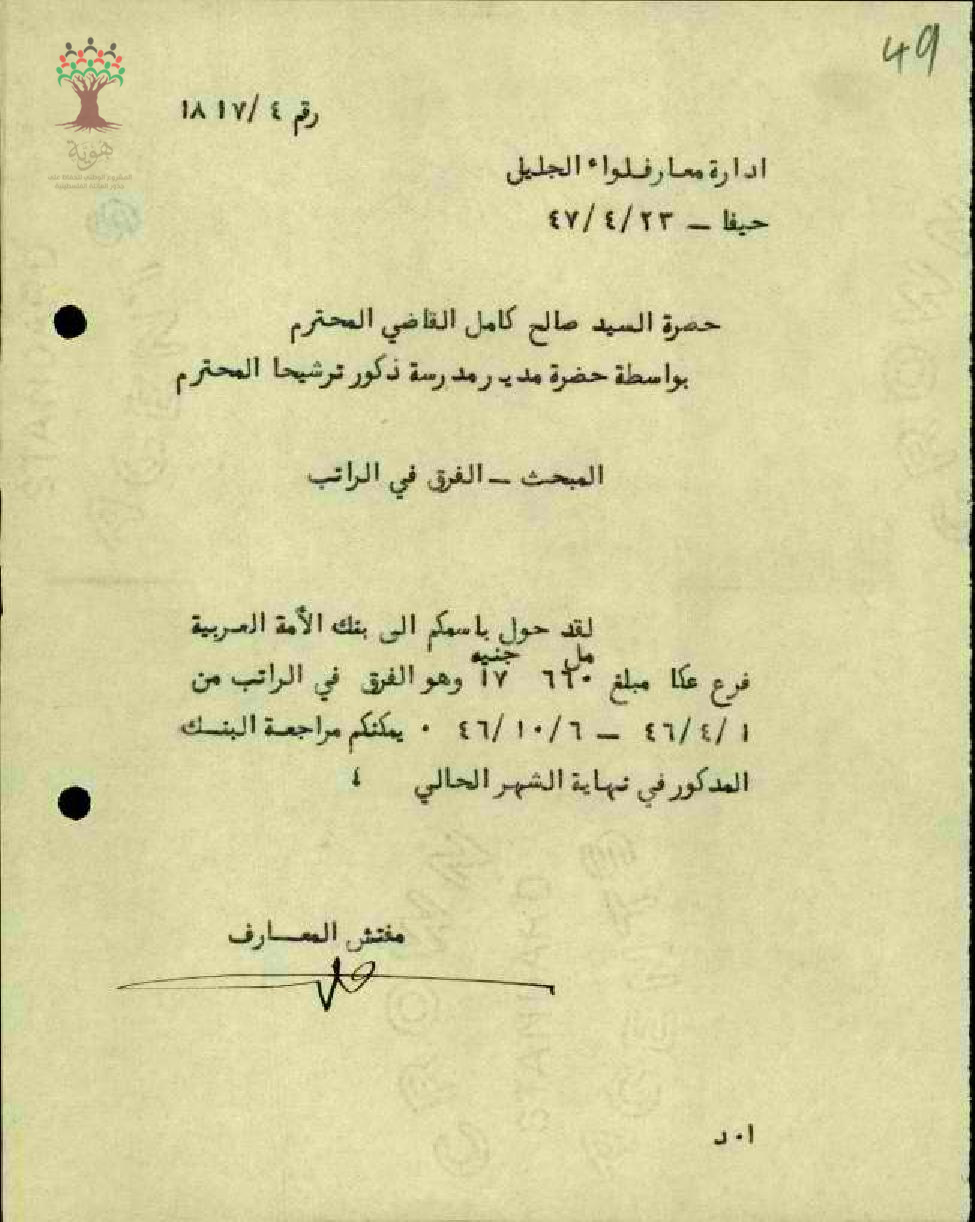 49
هوية
رقم ٤ /١٧ ١٨
ادارة معارف لواء الجليل
حيفا – ٤٧/٤/٢٣
حضرة السيد صالح كامل القاضي المحترم
بواسطة حضرة مدير مدرسة ذكور ترشيحا المحترم
المبحث – الفرق في الراتب
لقد حول باسمكم الى بنك الأمة العربية
مل جنيه
فرع عكا مبلغ ٦٦٠ ١٧ وهو الفرق في الراتب من
٤٦/٤/١ – ٤٦/١٠/٦ ٠ يمكنكم مراجعة البنك
المدكور في نهاية الشهر الحالي
مفتش المعارف
ا٠د